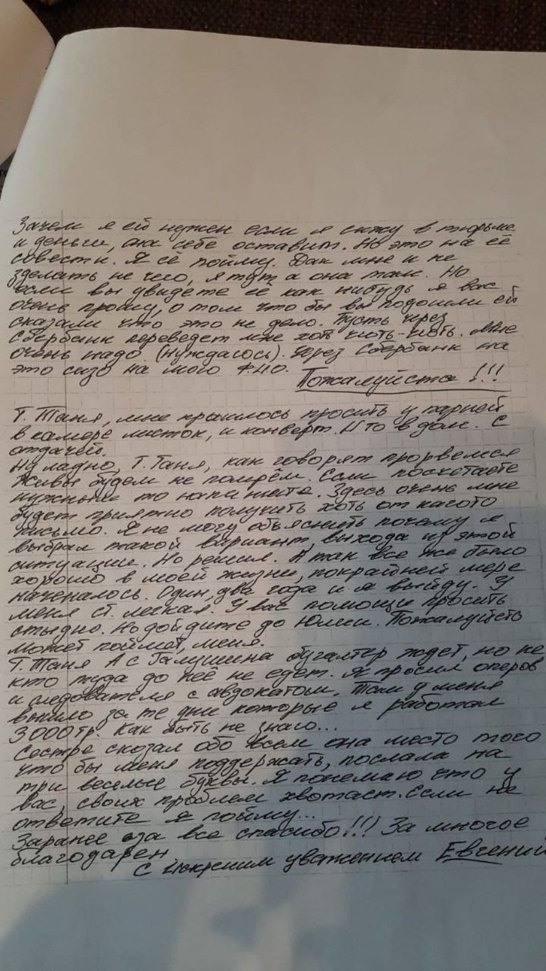 Зачем я ей нужен если я сижу в тюрьме
и деньги, она себе оставит. Но это на её
совести. Я её пойму. Дак мне и не
сделать не чего, я тут а она там. Но
если вы увидете её как нибудь я вас
очень прошу, о том что бы вы подошли ей
сказали что это не дело. Пусть через
Сбербанк переведет мне хоть чють-чють. Мне
очень надо (нуждаюсь). Через Сбербанк на
это сизо на мого ФИО.
Пожалуйста!!!
Т. Таня, мне пришлось просить у парней
в камере листок, и конверт. И то в долг. С
отдачей.
Ну ладно, Т. Таня, как говорят прорвемся
живы будем не помрём. Если посчетаете
нужным то напишете. Здесь очень мне
будет приятно получить хоть от кагото
письмо. Я не могу объяснить почему я
выбрал такой вариант, выхода из этой
ситуации. Но решил. А так все же было
хорошо в моей жизни, покрайней мере
началось. Один, два года и я выйду. У
меня ст. легкая. У вас помощи просить
стыдно. Но дойдите до Юлии. Пожалуйсть
может поймет, меня.
Т. Таня А с Галушина бугалтер ждет, но не
кто туда до неё не едет. Я просил оперов
и следователя с адвокатом. Там у меня
вышло за те дни которые я работал
3000тр. Как быть не знаю...
Сестре сказал обо всем она место того
что бы меня поддержать, послала на
три веселые буквы. Я понемаю что у
вас, своих проблем хвотает. Если не
ответите я пойму...
Заранее за все спасибо!!! За многое
благодарен
С искреним уважением Евгений